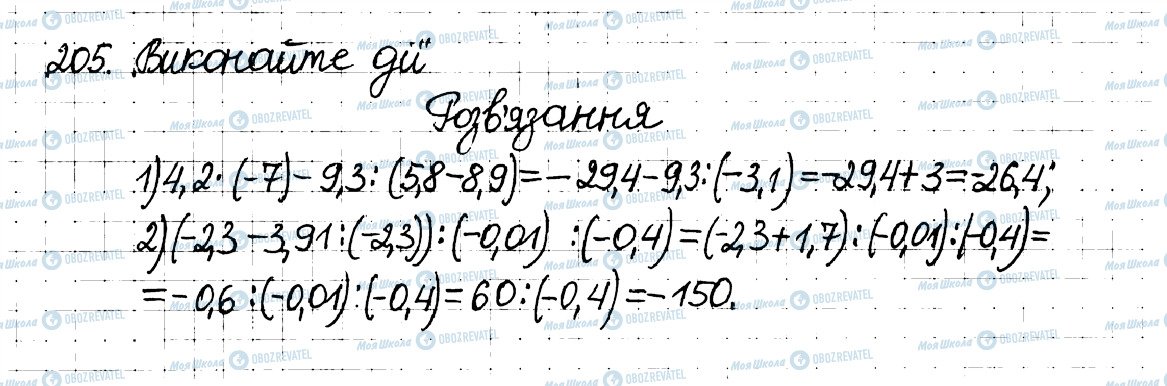 205. Виконайте дії
Розв'язання
1) 4,2·(-7)-9,3:(5,8-8,9)=-29,4-9,3:(-3,1)=-29,4+3=-26,4;
2) (-2,3-3,91:(-2,3)):(-0,01) :(-0,4)=(-2,3+1,7):(-0,01):(-0,4)=
=-0,6:(-0,01):(-0,4)=60:(-0,4)=-150.